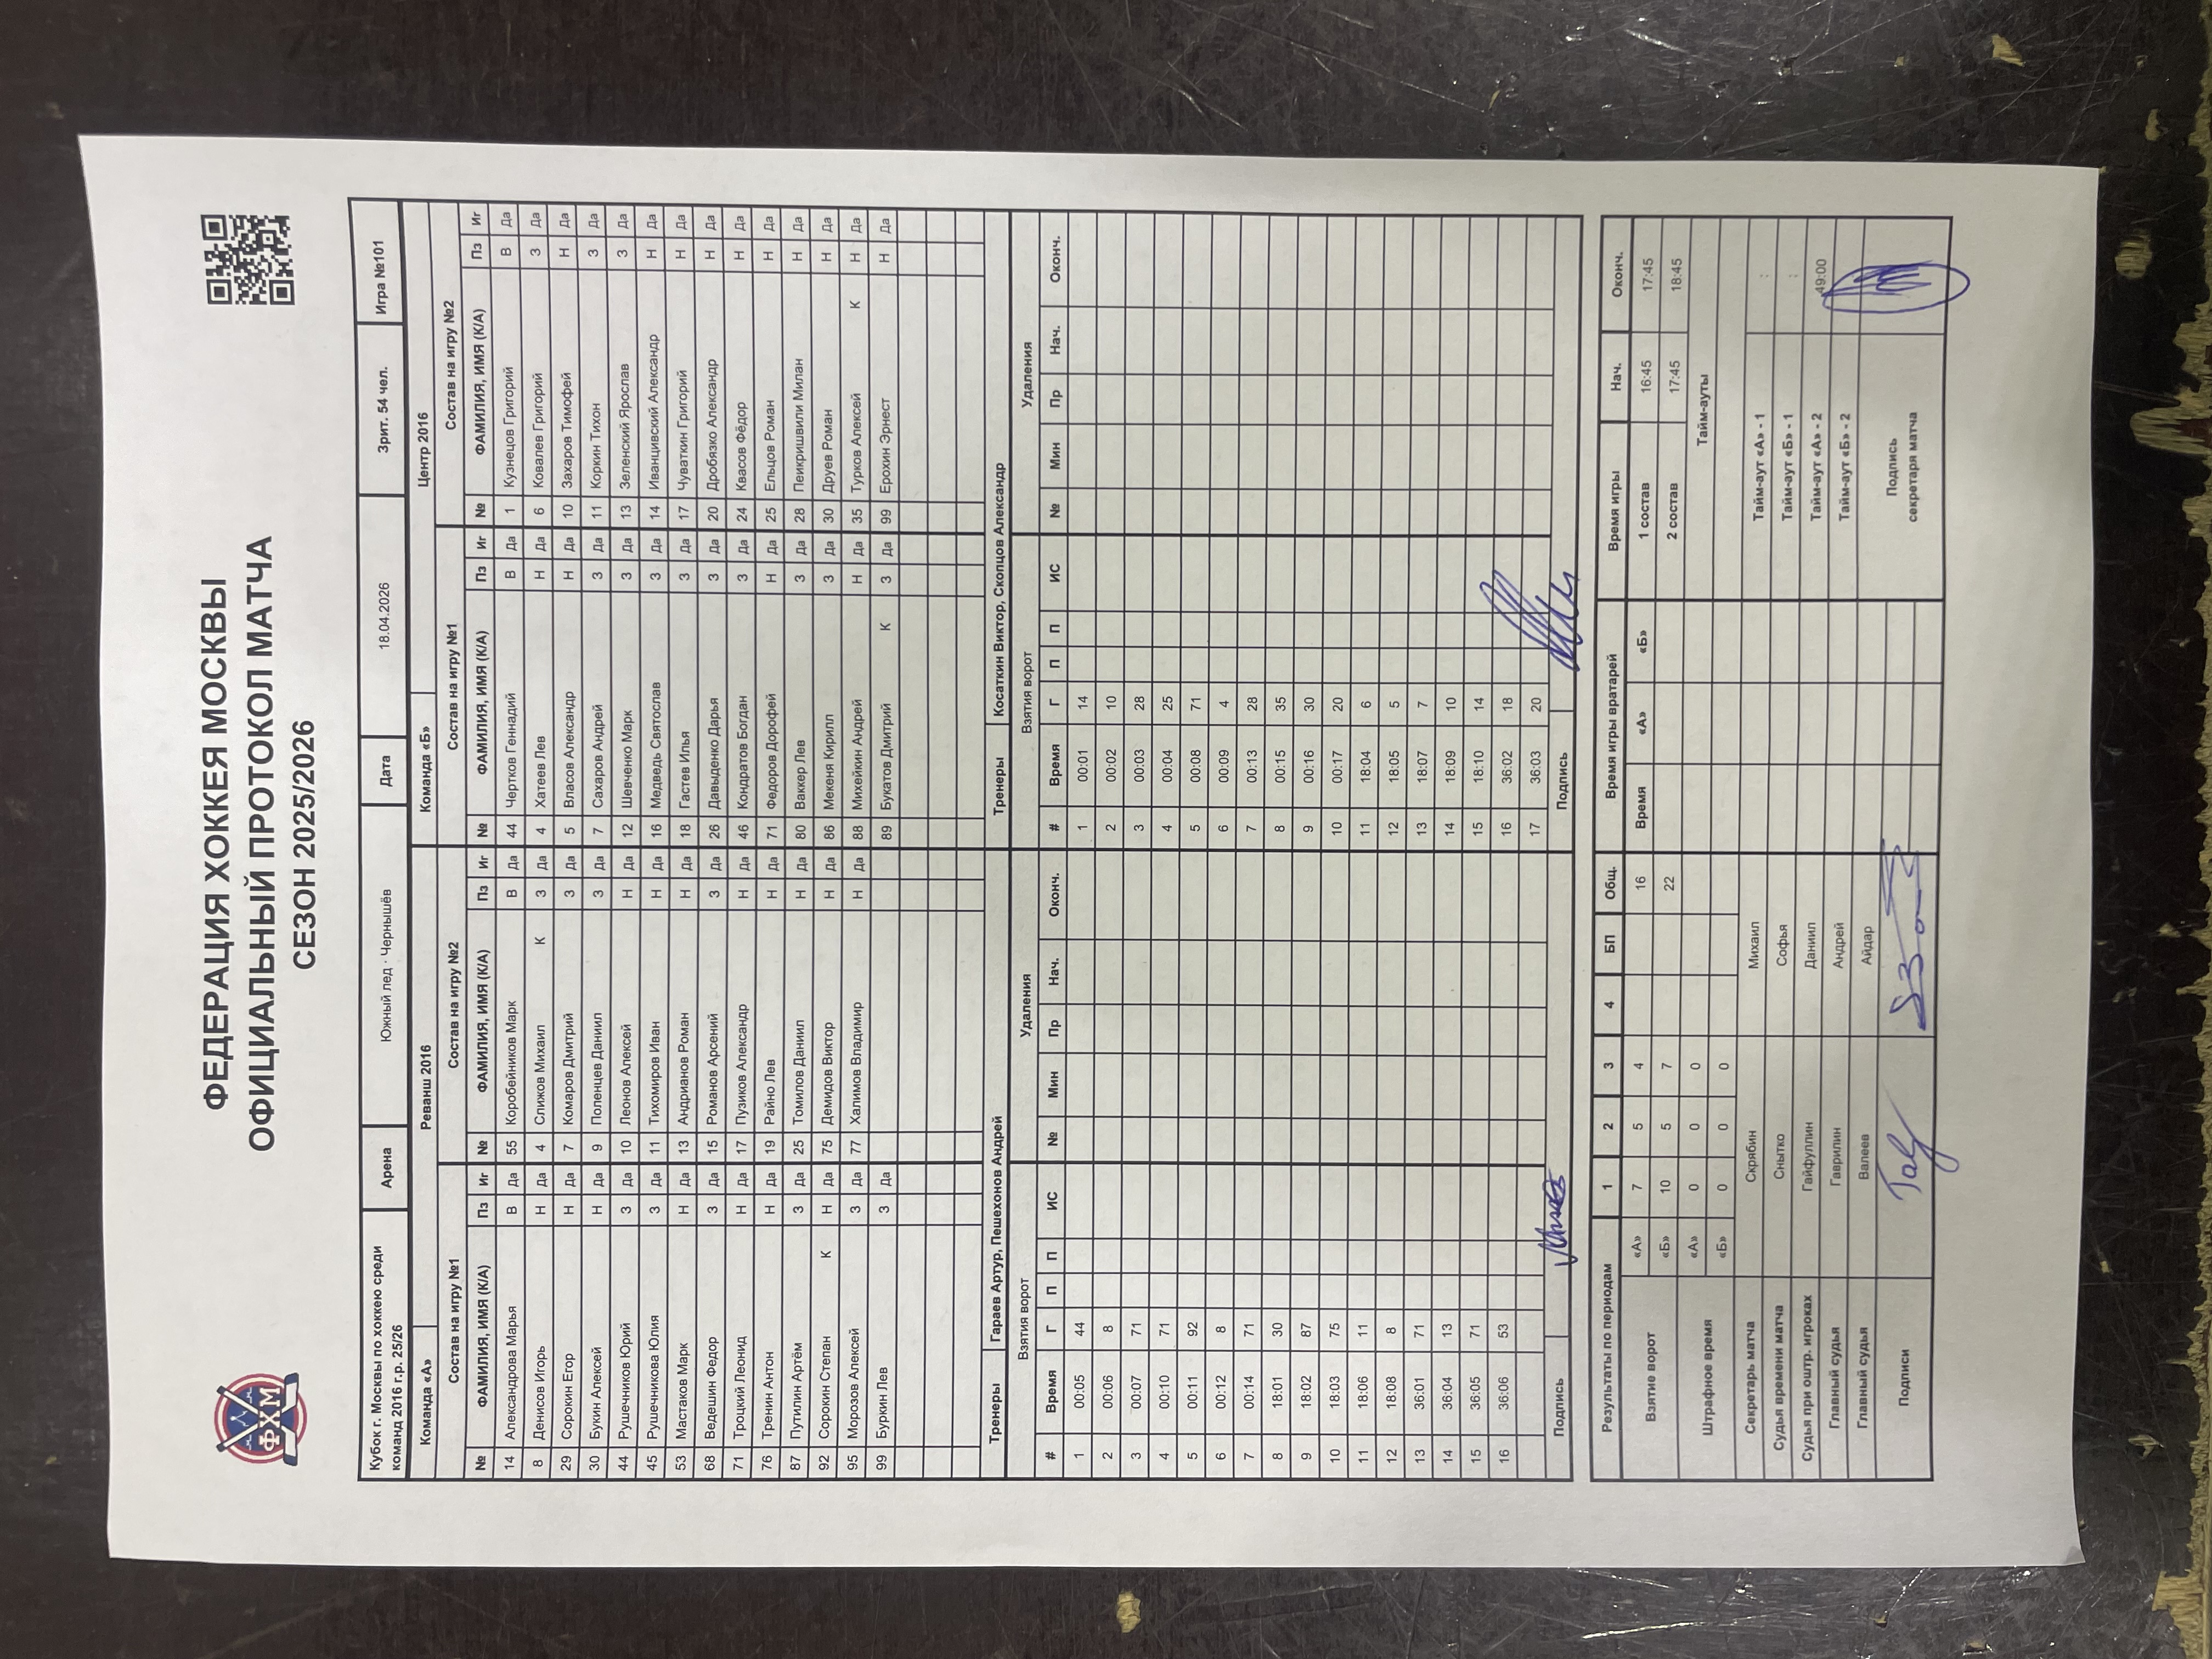 ФХМ
ФЕДЕРАЦИЯ ХОККЕЯ МОСКВЫ
ОФИЦИАЛЬНЫЙ ПРОТОКОЛ МАТЧА
СЕЗОН 2025/2026
Кубок г. Москвы по хоккею среди команд 2016 г.р. 25/26 Арена Южный лед · Чернышёв Дата 18.04.2026 Зрит. 54 чел. Игра №101
Команда «А» Реванш 2016 Команда «Б» Центр 2016
Состав на игру №1 Состав на игру №2 Состав на игру №1 Состав на игру №2
№ ФАМИЛИЯ, ИМЯ (К/А) Пз Иг № ФАМИЛИЯ, ИМЯ (К/А) Пз Иг № ФАМИЛИЯ, ИМЯ (К/А) Пз Иг № ФАМИЛИЯ, ИМЯ (К/А) Пз Иг
14 Александрова Марья В Да 55 Коробейников Марк В Да 44 Чертков Геннадий В Да 1 Кузнецов Григорий В Да
8 Денисов Игорь Н Да 4 Слижов Михаил К З Да 4 Хатеев Лев Н Да 6 Ковалев Григорий З Да
29 Сорокин Егор Н Да 7 Комаров Дмитрий З Да 5 Власов Александр Н Да 10 Захаров Тимофей Н Да
30 Букин Алексей Н Да 9 Поленцев Даниил З Да 7 Сахаров Андрей З Да 11 Коркин Тихон З Да
44 Рушечников Юрий З Да 10 Леонов Алексей Н Да 12 Шевченко Марк З Да 13 Зеленский Ярослав З Да
45 Рушечникова Юлия З Да 11 Тихомиров Иван Н Да 16 Медведь Святослав З Да 14 Иванцивский Александр Н Да
53 Мастаков Марк Н Да 13 Андрианов Роман Н Да 18 Гастев Илья З Да 17 Чуваткин Григорий Н Да
68 Ведешин Федор З Да 15 Романов Арсений З Да 26 Давыденко Дарья З Да 20 Дробязко Александр Н Да
71 Троцкий Леонид Н Да 17 Пузиков Александр Н Да 46 Кондратов Богдан З Да 24 Квасов Фёдор Н Да
76 Тренин Антон Н Да 19 Райно Лев Н Да 71 Федоров Дорофей Н Да 25 Ельцов Роман Н Да
87 Путилин Артём З Да 25 Томилов Даниил Н Да 80 Ваккер Лев З Да 28 Пеикришвили Милан Н Да
92 Сорокин Степан К Н Да 75 Демидов Виктор Н Да 86 Мекеня Кирилл З Да 30 Друев Роман Н Да
95 Морозов Алексей З Да 77 Халимов Владимир Н Да 88 Михейкин Андрей Н Да 35 Турков Алексей К Н Да
99 Буркин Лев З Да 89 Букатов Дмитрий К З Да 99 Ерохин Эрнест Н Да
Тренеры Гараев Артур, Пешехонов Андрей Тренеры Косаткин Виктор, Скопцов Александр
Взятия ворот Удаления Взятия ворот Удаления
# Время Г П П ИС № Мин Пр Нач. Оконч. # Время Г П П ИС № Мин Пр Нач. Оконч.
1 00:05 44 1 00:01 14
2 00:06 8 2 00:02 10
3 00:07 71 3 00:03 28
4 00:10 71 4 00:04 25
5 00:11 92 5 00:08 71
6 00:12 8 6 00:09 4
7 00:14 71 7 00:13 28
8 18:01 30 8 00:15 35
9 18:02 87 9 00:16 30
10 18:03 75 10 00:17 20
11 18:06 11 11 18:04 6
12 18:08 8 12 18:05 5
13 36:01 71 13 18:07 7
14 36:04 13 14 18:09 10
15 36:05 71 15 18:10 14
16 36:06 53 16 36:02 18
17 36:03 20
Подпись Подпись
Результаты по периодам 1 2 3 4 БП Общ. Время игры вратарей Время игры Нач. Оконч.
Взятие ворот «А» 7 5 4 16 Время «А» «Б» 1 состав 16:45 17:45
«Б» 10 5 7 22 2 состав 17:45 18:45
Штрафное время «А» 0 0 0 Тайм-ауты
«Б» 0 0 0
Секретарь матча Скрябин Михаил Тайм-аут «А» - 1 :
Судья времени матча Снытко Софья Тайм-аут «Б» - 1 :
Судья при оштр. игроках Гайфуллин Даниил Тайм-аут «А» - 2 49:00
Главный судья Гаврилин Андрей Тайм-аут «Б» - 2
Главный судья Валеев Айдар
Подписи Подпись секретаря матча